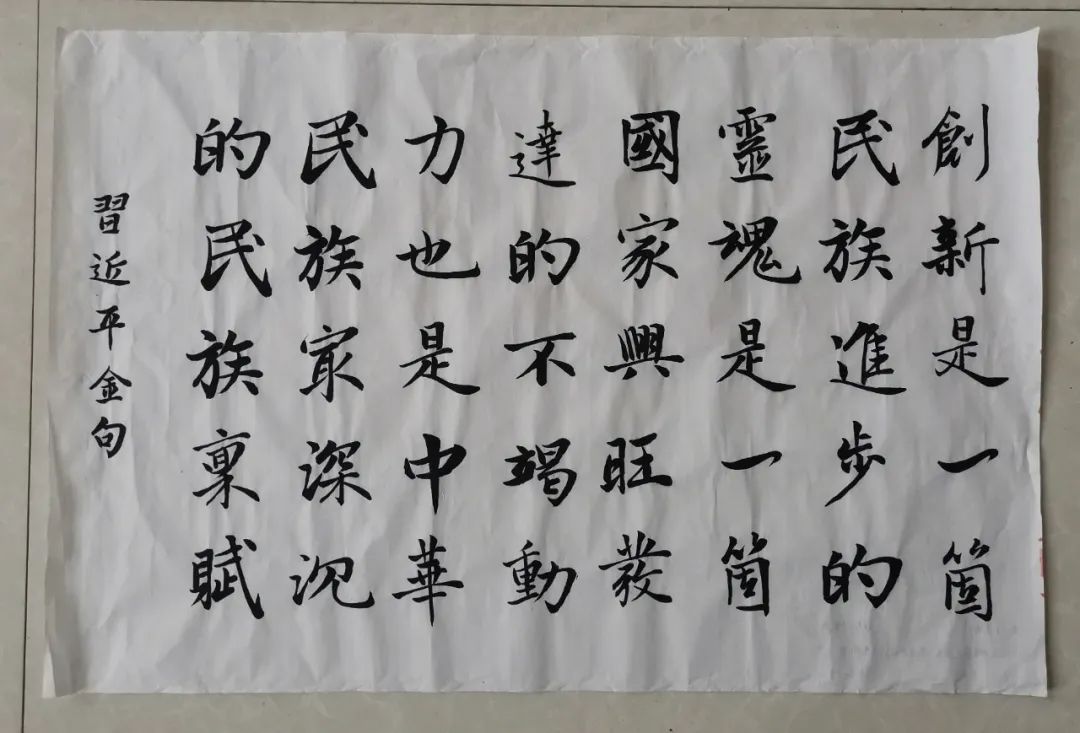 創新是一箇
民族進步的
靈魂是一箇
國家興旺發
達的不竭動
力也是中華
民族㝡深沉
的民族稟賦
習近平金句